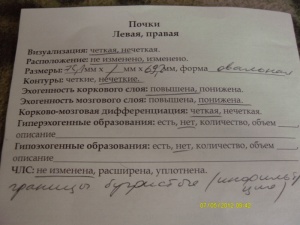 Почки
Левая, правая
Визуализация: четкая, нечеткая.
Расположение: не изменено, изменено.
Размеры: мм х мм х мм, форма овальная
Контуры: четкие, нечеткие.
Эхогенность коркового слоя: повышена, понижена.
Эхогенность мозгового слоя: повышена, понижена.
Корково-мозговая дифференциация: четкая, нечеткая.
Гиперэхогенные образования: есть, нет, количество, объем
описание
Гипоэхогенные образования: есть, нет, количество, объем
описание
ЧЛС: не изменена, расширена, уплотнена.
границы бугристые (инфильт